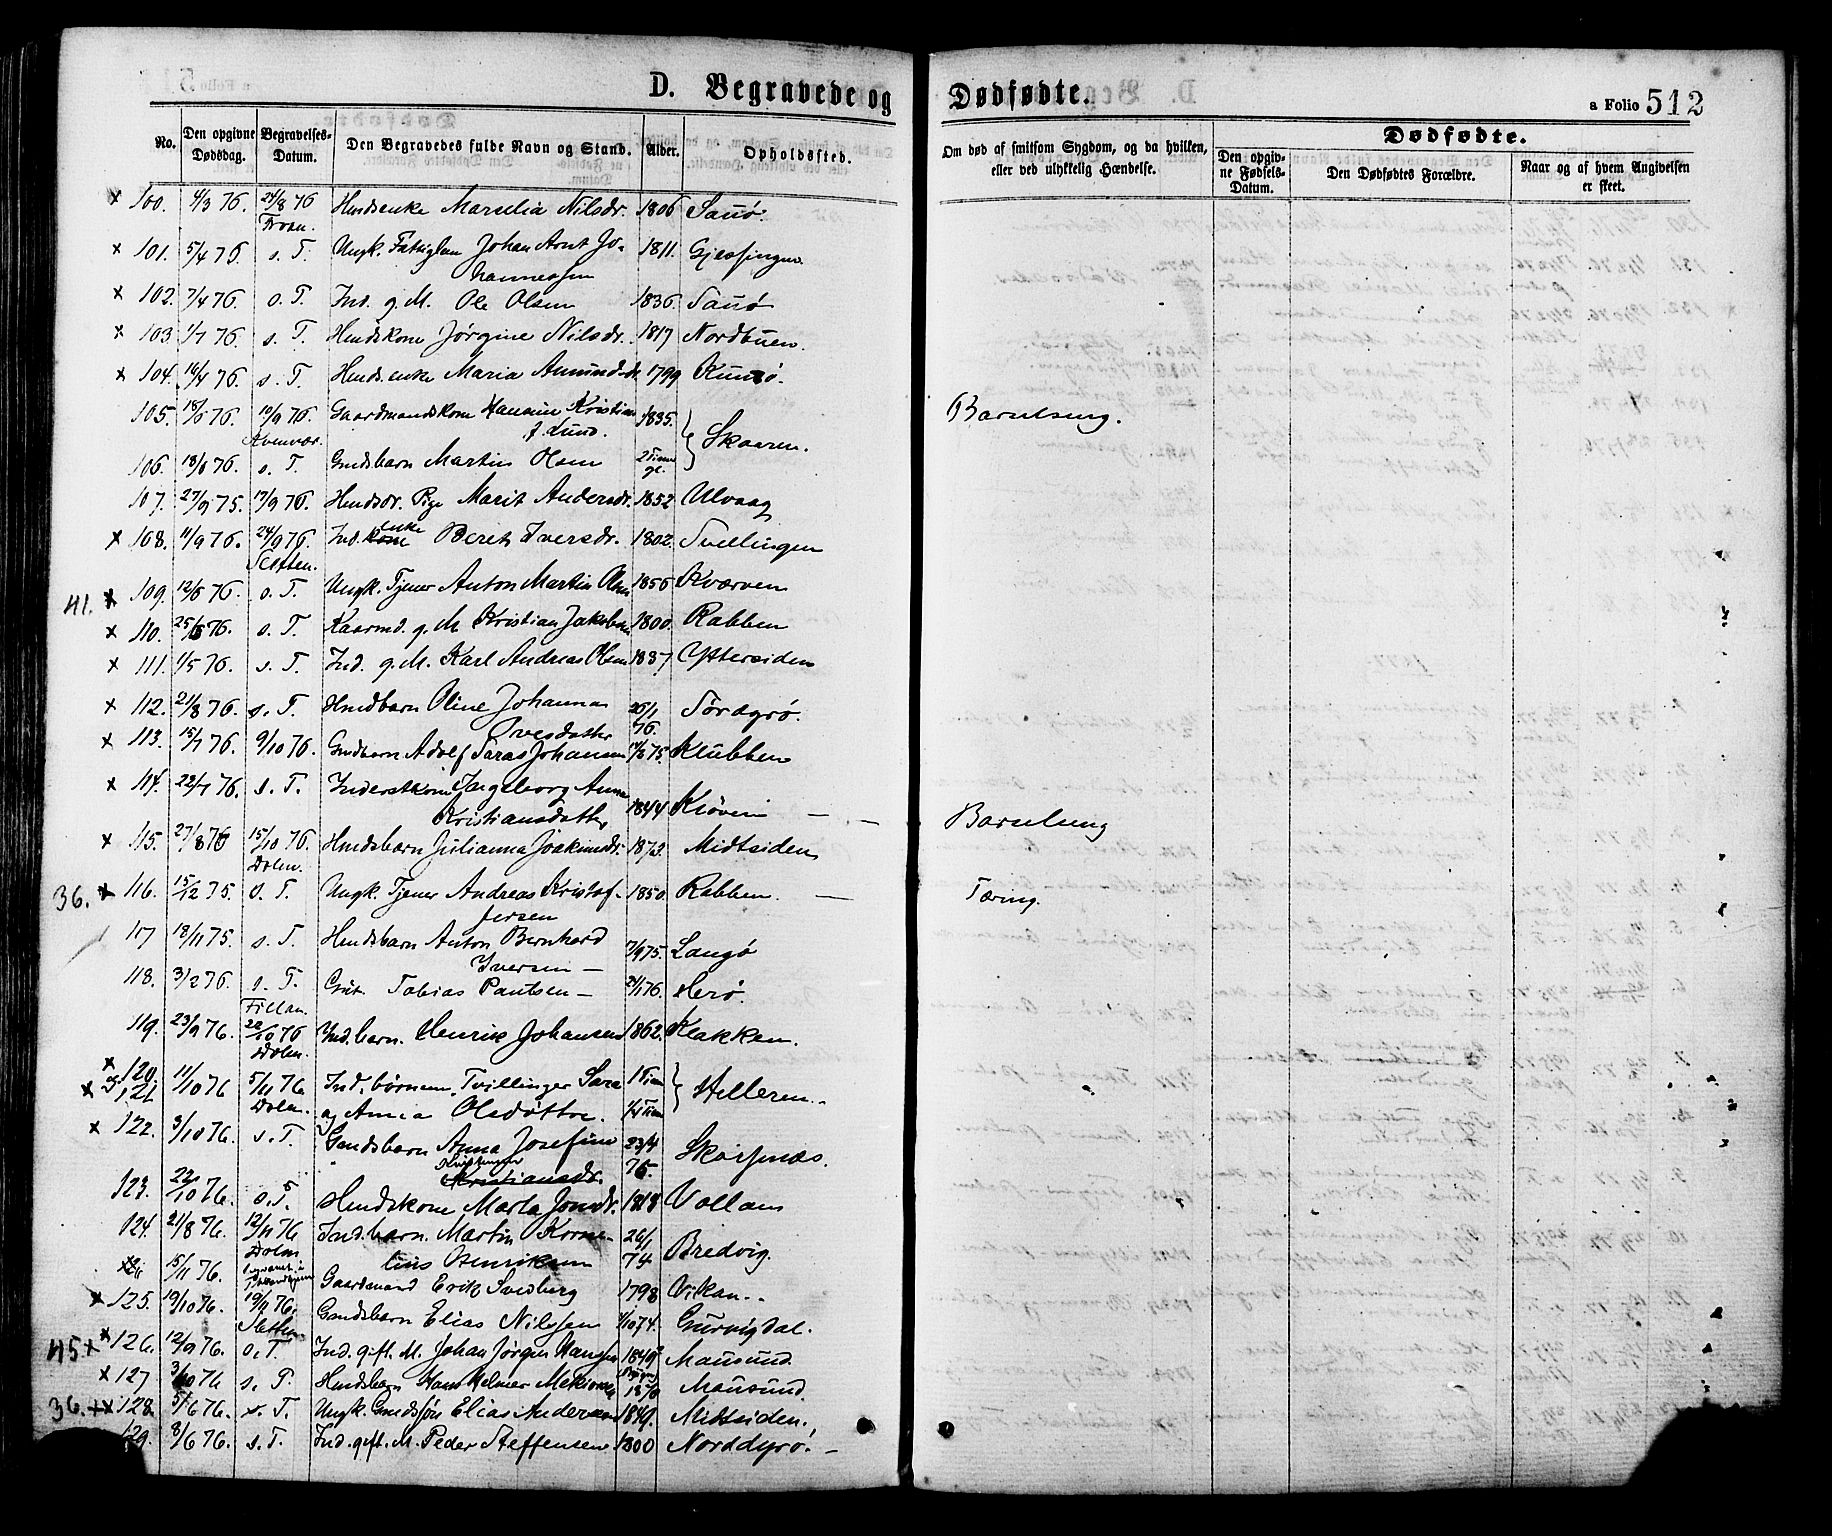 D. Begravede og Dødfødte.
a Folio 512
No. Den opgivne Dødsdag. Begravelses-Datum. Den Begravedes fulde Navn og Stand. Alder. Opholdssted. Om død af smitsom Sygdom, og da hvilken, eller ved ulykkelig Hændelse. Dødfødte.
Den opgivne Fødsels-Datum. Den Dødfødtes Forældre. Naar og af hvem Angivelsen er skeet.
x 100. 4/3 76. 27/8 76 Hmdsenke Marselia Nilsdr. 1806 Sauø.
Froan.
x 101. 5/4 76. s. T. Ungk. Fattiglem Johan Arnt Jo- 1811. Gjæsingen.
hannessen
x 102. 7/4 76. s. T. Ind. g. M. Ole Olsen 1836. Sauø
x 103 1/7 76. s. T. Hmdskone Jørgine Nilsdr. 1817 Nordbuen.
x 104. 16/4 76. s. T. Hmdsenke Maria Amundsdr. 1799 Kunnø.
105. 18/8 76. 10/9 76. Gaardmandskone Hansine Kristian 1835. Skaaren. Barselseng.
Kvenvær. f. Lund.
106. 18/8 76. s. T. Gmdsbarn Martin Olsen 2 Timer gl.
107. 27/9 75. 17/9 76. Hmdsdr. Pige Marit Andersdr. 1852 Ulvaag
x 108. 11/9 76. 24/9 76. Ind. enke Berit Iversdr. 1802. Svellingen
Sletten.
41. x 109. 12/6 76. s. T. Ungk. Tjener Anton Martin Olsen 1856 Kværven
x 110. 25/5 76. s. T. Kaarmd. g. M. Kristian Jakobsen 1800. Rabben
x 111. 1/5 76. s. T. Ind. g. M. Karl Andreas Olsen 1837 Yttersiden
x 112. 21/8 76. s. T. Hmdbarn Oline Johanna 26/1 76. Sørdyrø.
Ovesdatter
x 113. 15/7 76. 9/10 76. Gmdbarn Adolf Saras Johansen 75. Klubben
x 114. 22/7 76. s. T. Inderstkone Ingeborg Anna 1844 Kløven Barselseng
Kristiansdatter
x 115. 27/8 76 15/10 76. Hmdsbarn Julianna Joakimsdr. 1873. Midtsiden
Dolm.
36. x 116. 15/12 75. s. T. Ungk. Tjener Andreas Kristof- 1850. Rabben. Tæring.
fersen
117 18/11 75. s. T. Hmdsbarn Anton Bernhard 7/9 75. Langø
Iversen
118. 3/2 76. s. T. Gut. Tobias Paulsen 21/1 76. Herø.
Fillan.
119. 23/9 76. 22/10 76 Ind. barn. Henrik Johansen 1862. Klakken.
Dolm.
x 120. 11/10 76 5/11 76 Ind. børnene, Tvillinger Sara 1 Time Helleren.
x 121. Dolm. og Anna Olsdøttre. 1/4 Time
x 122. 3/10 76. s. T. Gmdsbarn Anna Josefine 23/4 76. Skarsnæs.
Kristiansdr.
123. 22/10 76. s. T. Hmdskone Marta Jonsdr. 1818 Vollan
124. 21/8 76. 12/11 76 Ind. barn. Martin Korne- 26/1 74. Bredvig.
Dolm lius Henriksen
15/11 76. Gaardmand Erik Svedberg 1798 Vikan.
x 125. 19/10 76. 19/11 76. Gmdsbarn Elias Nilssen 1/10 74. Gurvigdal.
Sletten
45 x x 126. 12/9 76. s. T. Ind. gift. M. Johan Jørgen Hansen 1840 Mausund.
x 127 3/10 76 s. T. Hmdsbarn Hans Helmer 1870 Mausund.
36. x x 128 5/6 76. s. T. Ungk. Gmdssøn Elias Andersen 1849. Midtsiden.
129. 8/6 76. s. T. Ind. gift. M. Peder Steffensen 1800 Norddyrø.